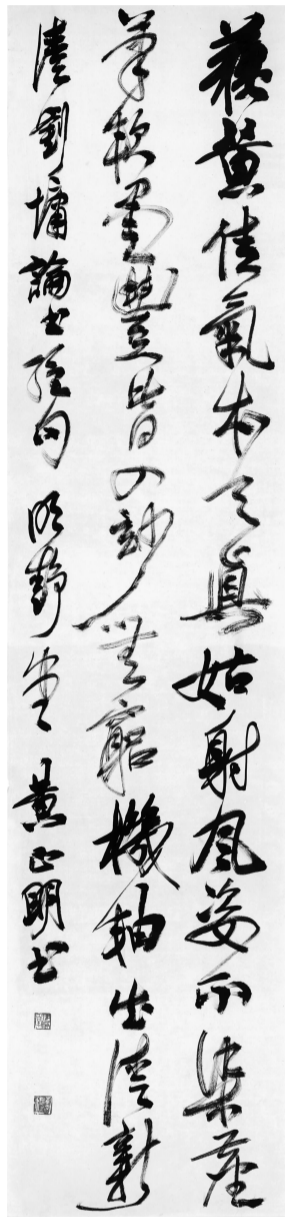 蘇黃佳氣本天真姑射風姿不染塵
筆軟墨豐皆入妙無窮機軸出清新
清劉墉論書絕句 靜堂 黃正明書